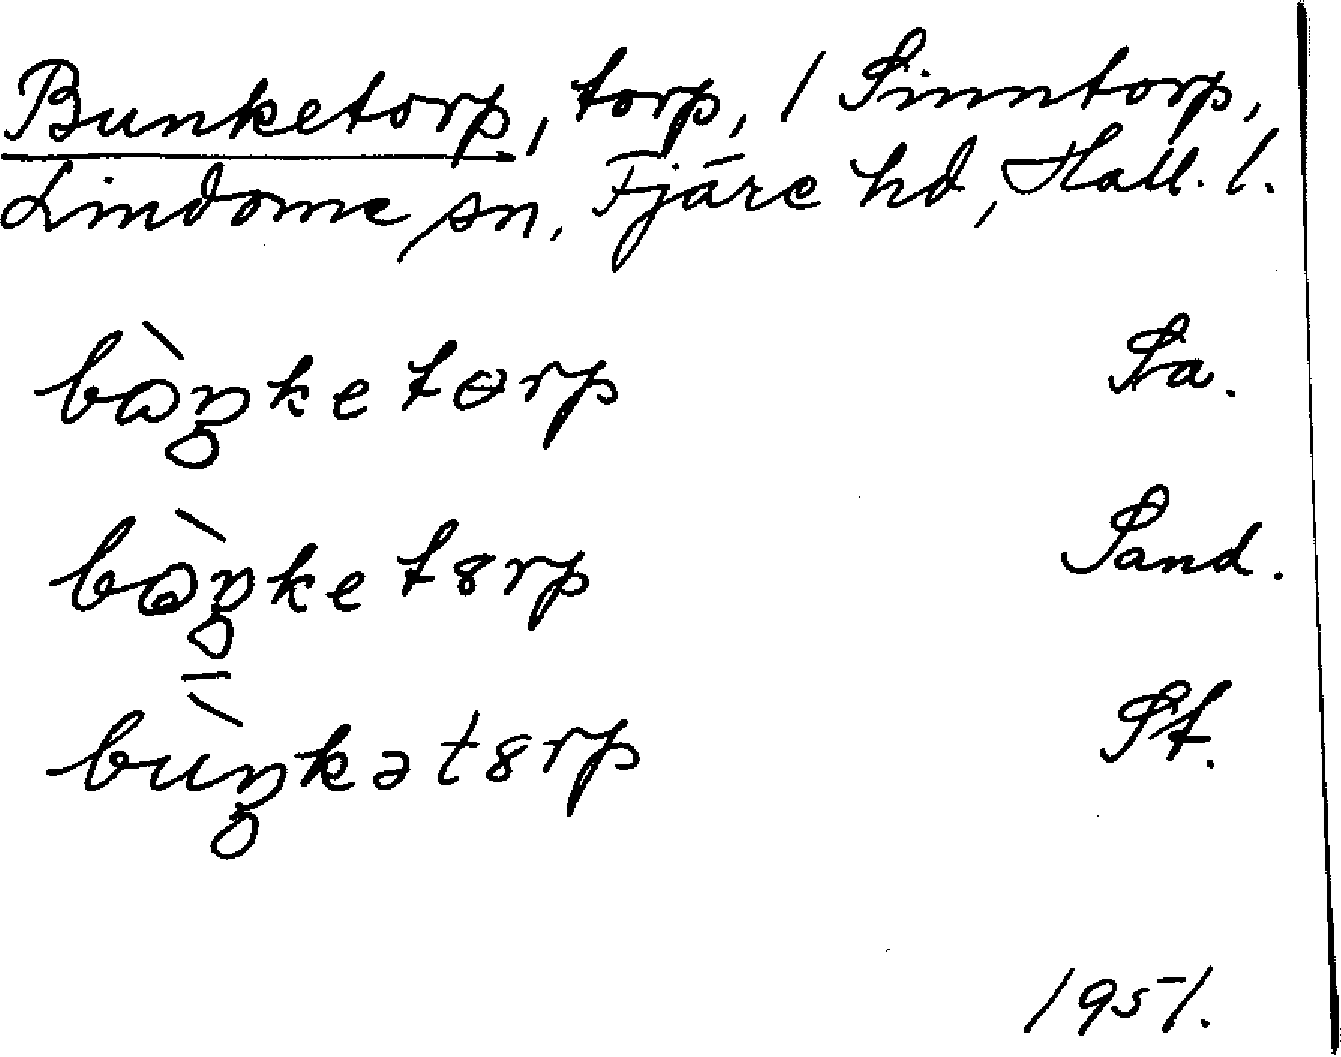 Bunketorp, torp, / Sinntorp,
Lindome sn, Fjäre hd, Hall. l.
bɷ̀ŋketɵrp Sa.
kət8rp Sand.
bùŋkət8rp St.
1951.